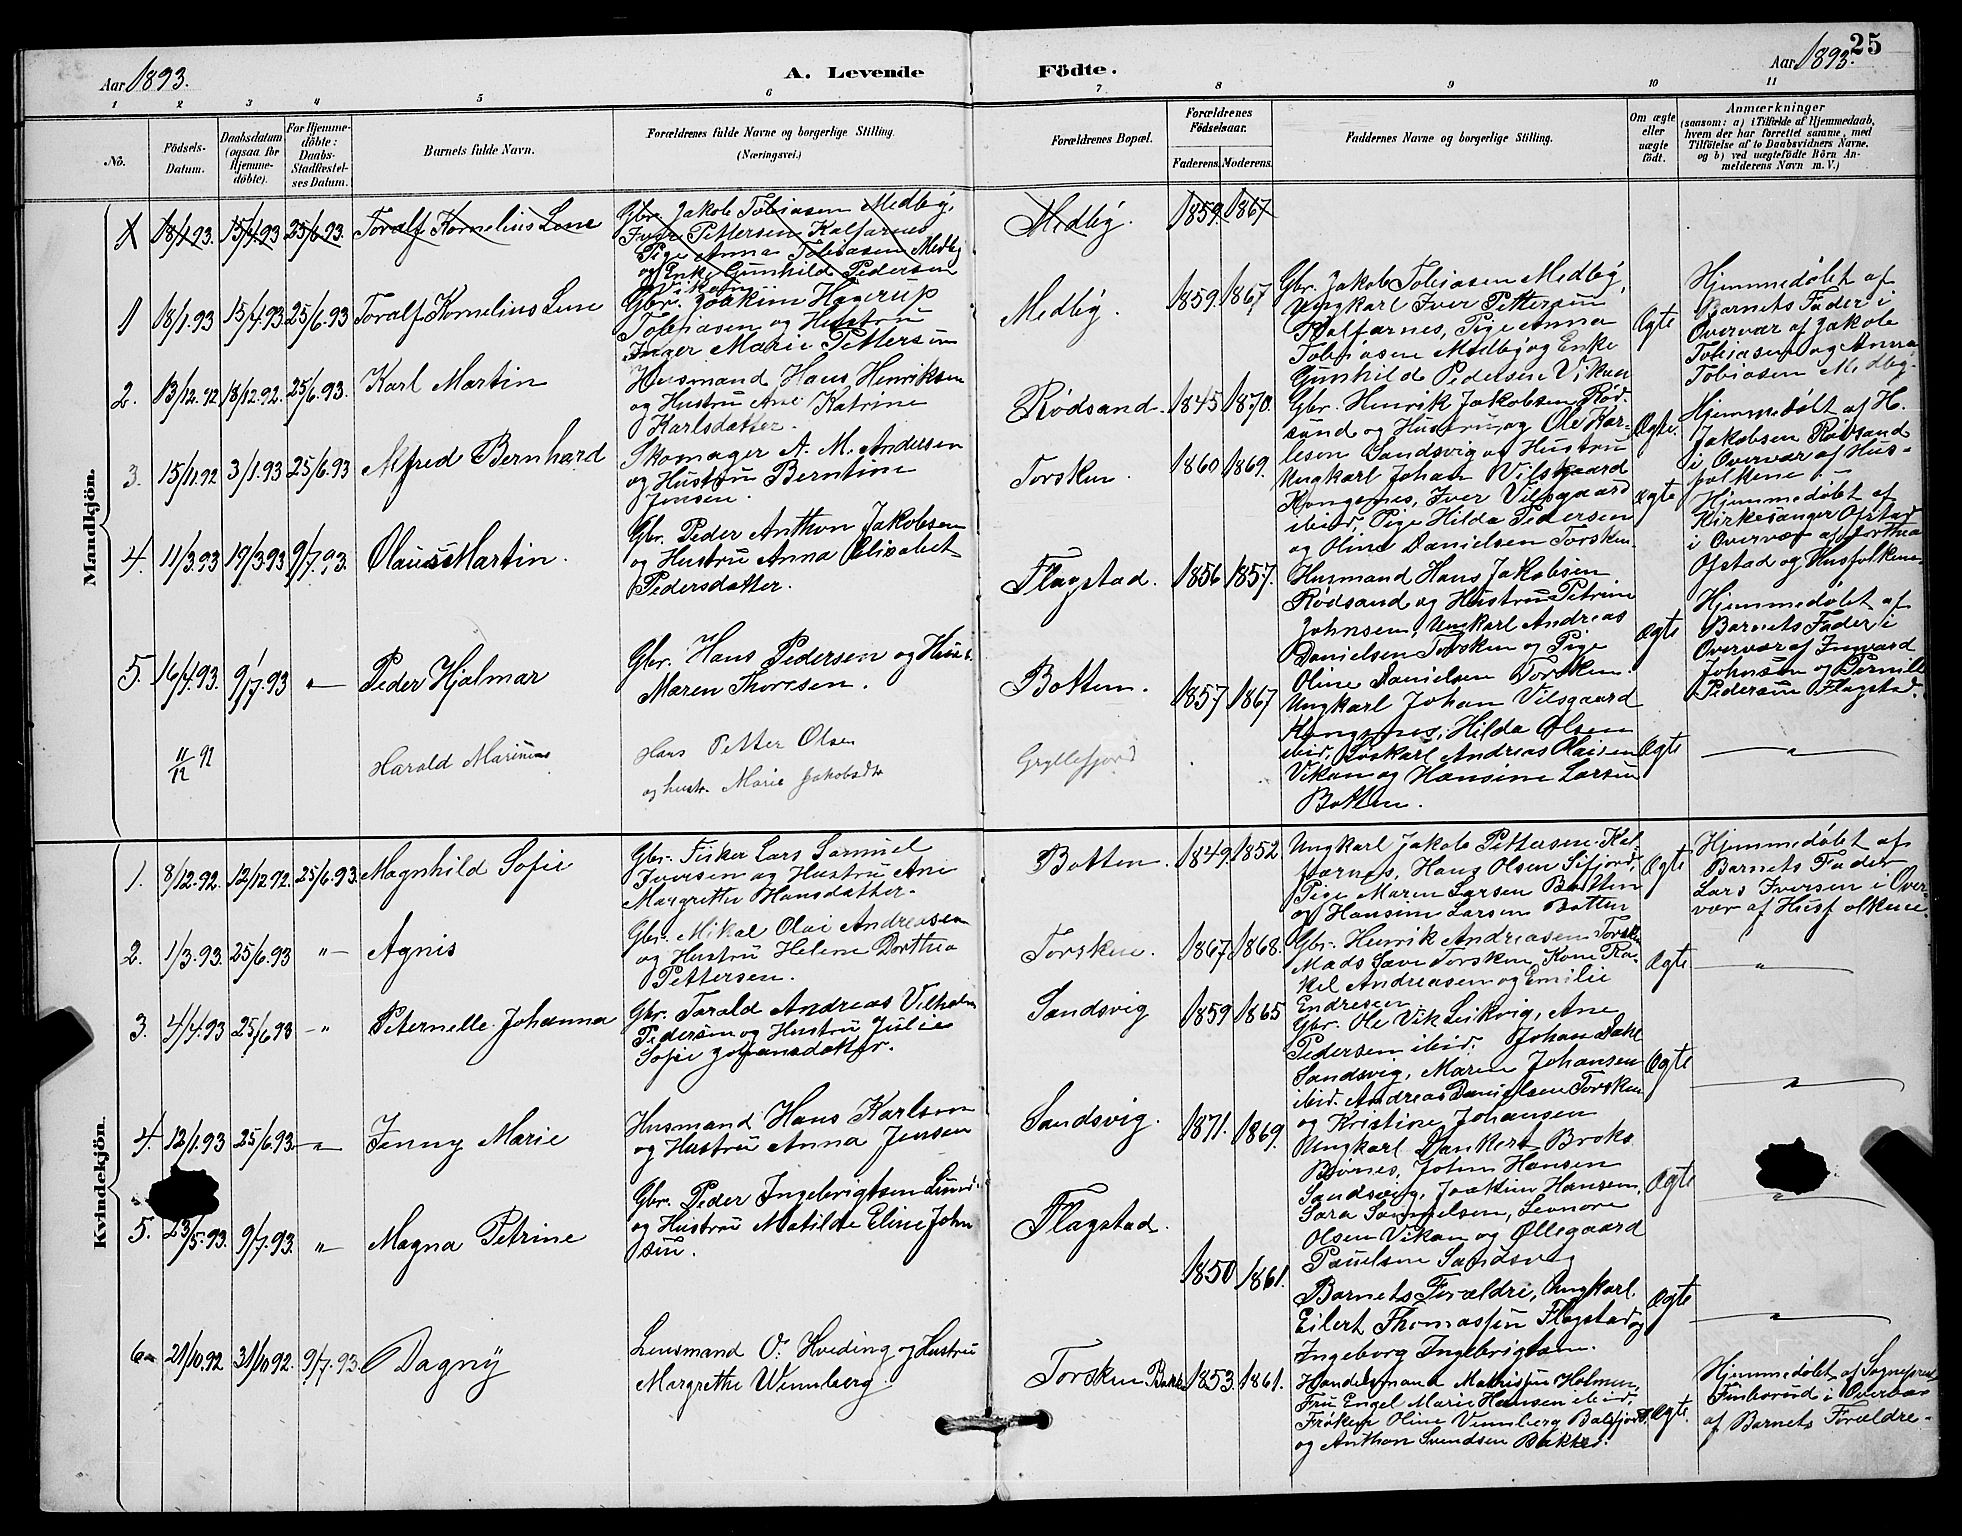 25
Aar 1893.
A. Levende
Födte.
Aar 1893.
1 2 3 4 5 6 7 8 9 10 11
No.
Födsels-
Datum.
Daabsdatum
(ogsaa for
Hjemme-
döbte).
For Hjemme-
döbte:
Daabs-
Stadfæstel-
ses Datum.
Barnets fulde Navn.
Forældrenes fulde Navne og borgerlige Stilling.
(Næringsvei.)
Forældrenes Bopæl.
Forældrenes
Födselsaar.
Faderens. Moderens.
Faddernes Navne og borgerlige Stilling.
Om ægte
eller
uægte
født.
Anmærkninger
(saasom: a) i Tilfælde af Hjemmedaab,
hvem der har forrettet samme, med
Tilföielse af to Daabsvidners Navne,
og b) ved uægtefödte Börn An-
melderens Navn m. V.)
Mandkjön.
1 18/1.93. 15/4.93 25/6.93. Toralf Kornelius Lene
Gbr. Jakob Tobiasen Medbÿ,
Iver Pettersen Kalfarnes
Pige Anna Tobiasen Medbÿ
og Enke Gunhild Pedersen
Vikan
Medbÿ. 1859. 1867
1 18/1.93 15/4.93. 25/6.93 Toralf Kornelius Lene
Gbr. Joakim Hagerup
Tobiasen og Hustru
Inger Marie Pettersen
Medbÿ. 1859. 1867
Gbr. Jakob Tobiasen Medbÿ,
Ungkarl Iver Pettersen
Kalfarnes, Pige Anna
Tobiasen Medbÿ og Enke
Gunhilde Pedersen Vikan
Ægte
Hjemmedøbt af
Barnets Fader i
Overvær af Jakob
Tobiasen og Anna
Tobiasen Medbÿ.
2. 13/12.92 18/12.92. 25/6.93. Karl Martin
Husmand Hans Henriksen
og Hustru Ane Katrine
Karlsdatter.
Rödsand. 1845 1870.
Gbr. Henrik Jakobsen Röd-
sand og Hustru, og Ole Kar-
lesen Sandsvig og Hustru
Ægte.
Hjemmedøbt af H.
Jakobsen Rödsand
i Overvær af Hus-
folkene
3. 15/11.92 3/1.93 25/6.93 Alfred Bernhard
Skomager A. M. Andersen
og Hustru Berntine
Jensen.
Torsken. 1860 1869.
Ungkarl Johan Vilsgaard
Kongsnes, Iver Vilsgaard
ibid. Pige Hilda Pedersen
og Oline Danielsen Torsken.
Ægte
Hjemmedøbt af
Kirkesanger Ofstad
i Overvær af Dorthea
Ofstad og Husfolkene
4. 11/3.93 19/3.93 9/7.93. Olaus Martin.
Gbr. Peder Anthon Jakobsen
og Hustru Anna Elisabet
Pedersdatter.
Flagstad. 1856 1857.
Husmand Hans Jakobsen
Rödsand og Hustru Petrine
Johnsen, Ungkarl Andreas
Danielsen Torsken og Pige
Oline Danielsen Torsken.
Ægte
Hjemmedøbt af
Barnets Fader i
Overvær af Ingvard
Johnsen og Pernille
Pedersen Flagstad.
5. 16/4.93. 9/7.93 " Peder Hjalmar
Gbr. Hans Pedersen og Hust.
Maren Thoresen.
Botten. 1857 1867
Ungkarl Johan Vilsgaard
Kongsnes, Hilda Olsen
ibid. Löskarl Andreas Olaisen
Vikan og Hansine Larsen
Botten.
Ægte "
11/12 92 Harald Marinus
Hans Petter Olsen
og hustr. Marie Jakobsdtr
Gryllefjord
Kvindekjön.
1. 8/12.92. 12/12.92. 25/6.93. Magnhild Sofie
Gbr. Fisker Lars Samuel
Iversen og Hustru Ane
Margrethe Hansdatter.
Botten. 1849. 1852.
Ungkarl Jakob Pettersen Kal-
farnes, Hans Olsen Sifjord,
Pige Maren Larsen Botten
og Hansine Larsen Botten
Ægte
Hjemmedøbt af
Barnets Fader
Lars Iversen i Over-
vær af Husfolkene.
2. 1/3.93. 25/6.93 " Agnis
Gbr. Mikal Olai Andreasen
og Hustru Helene Dorthea
Pettersen.
Torsken. 1867 1868.
Gbr. Henrik Andreasen Torsken
Mads Torsken, Kone Ra-
kel Andreasen og Emilie
Endresen
Ægte "
3. 4/4.93 25/6.93 " Peternelle Johanna
Gbr. Tarald Andreas Vilhelm
Pedersen og Hustru Julie
Sofie Johansdatter.
Sandsvig 1859 1865
Gbr. Ole Vik Leikvig, Ane
Pedersen ibid. Johan Dahl
Sandsvig, Maren Johansen
ibid. Andreas Danielsen Torsken
og Kristine Johansen
Ægte "
4. 12/1.93 25/6.93 " Jenny Marie
Husmand Hans Karlsen
og Hustru Anna Jensen
Sandsvig. 1871. 1869.
Ungkarl Dankert Broks
Björnes, John Hansen
Sandsvig, Joakim Hansen,
Sara Samuelsen, Leonore
Olsen Vikan og Øllegaard
Paulsen Sandsvig
Ægte "
5. 23/5.93. 9/7.93. " Magna Petrine
Gbr. Peder Ingebrigtsen Lund
og Hustru Matilde Eline John
sen.
Flagstad. 1850 1861.
Barnets Forældre, Ungkarl
Eilert Thomassen Flagstad og
Ingeborg Ingebrigtsen.
Ægte "
6 21/10.92 31/10.92. 9/7.93. Dagnÿ
Lensmand O. Hveding og Hustru
Margrethe Wennberg.
Torsken Bakke 1853. 1861.
Handelsmand Mathisen Holmen,
Fru Engel Marie Hansen ibid,
Fröken Oline Vennberg Balsfjord,
og Anthon Svendsen Bakke.
Ægte.
Hjemmedøbt af Sogneprest
Finborud i Overvær
af Barnets Forældre.